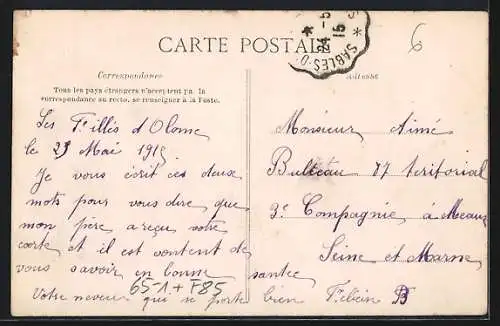 CARTE POSTALE
* SABLES-D
24 -5
15
*
6
Correspondance
Tous les pays étrangers n'acceptent pas la
correspondance au recto, se renseigner à la Poste.
Adresse
Les
d'Olonne
le 23 Mai 1915
Je vous écrit ces deux
mots pour vous dire, que
mon père a reçu votre
carte et il est content de
vous savoir en bonne santee
Votre neveu qui se porte bien
65-1 + F85
Monsieur Aimé
Bulteau 87 teritorial
3e Compagnie, à Meaux
Seine et Marne
B